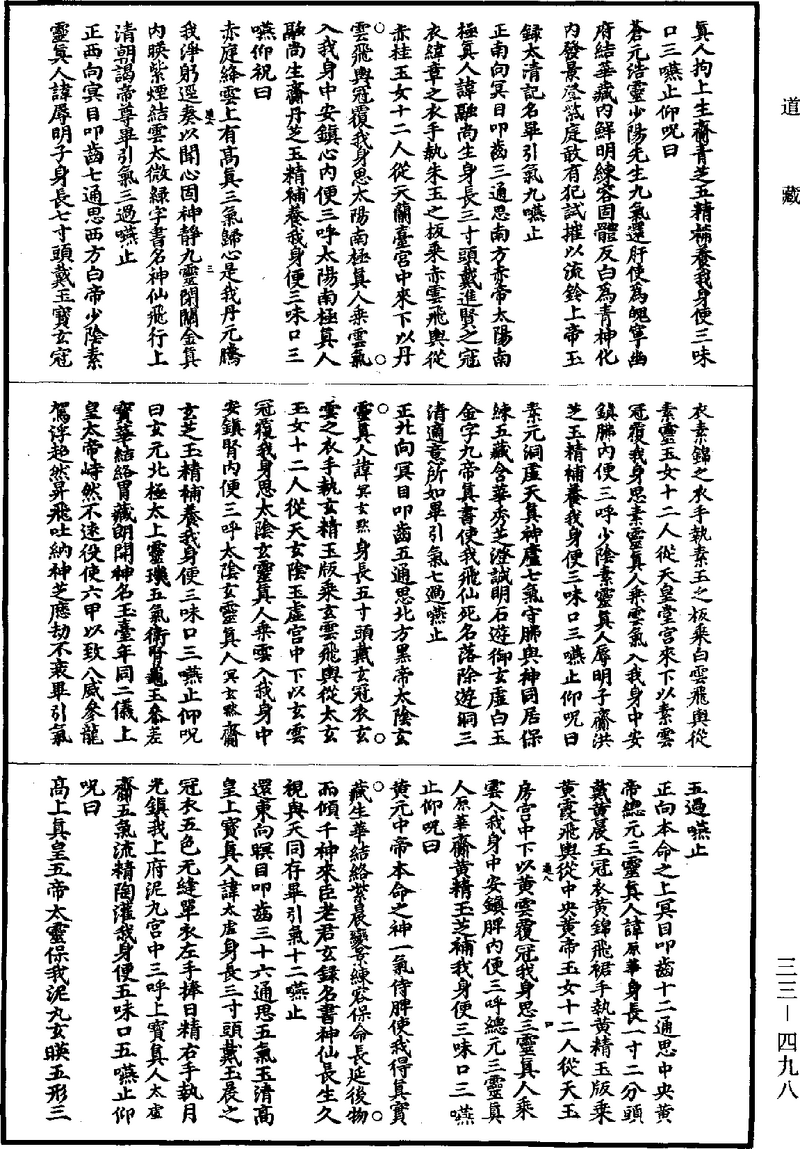 道藏
真人拘上生齎青芝玉精補養我身便三味
口三嚥止仰呪曰
蒼元浩靈少陽先生九氣還肝使為魄寧幽
府結華藏內鮮明練容固體反白為青神化
內發景登紫庭敢有犯試摧以流鈴上帝玉
錄太清記名畢引氣九嚥止
正南向冥目叩齒三通思南方赤帝太陽南
極真人諱融尚生身長三寸頭戴進賢之冠
衣絳章之衣手執朱玉之板乘赤雲飛輿從
赤桂玉女十二人從天蘭臺宮中來下以丹
雲飛輿冠覆我身思太陽南極真人乘雲氣
入我身中安鎮心內便三呼太陽南極真人
融尚生齎丹芝玉精補養我身便三味口三
嚥仰祝曰
赤庭絳雲上有高真三氣歸心是我丹元騰
我淨躬遥奏以聞心固神靜九靈閑關金真
內暎紫煙結雲太微綠字書名神仙飛行上
清朝謁帝尊畢引氣三過嚥止
正西向冥目叩齒七通思西方白帝少陰素
靈真人諱辱明子身長七寸頭戴玉寶玄冠
衣素錦之衣手執素玉之板乘白雲飛輿從
素靈玉女十二人從天皇堂宮來下以素雲
冠覆我身思素靈真人乘雲氣入我身中安
鎮肺內便三呼少陰素靈真人辱明子齎洪
芝玉精補養我身便三味口三嚥止仰呪曰
素元洞虛天真神廬七氣守肺與神同居保
練五藏含華秀芝澄誠明石遊御玄虛白玉
金字九帝真書使我飛仙死名落除遊洞三
清適意所如畢引氣七過嚥止
正北向冥目叩齒五通思北方黑帝太陰玄
靈真人諱冥玄煞身長五寸頭戴玄冠衣玄
雲之衣手執玄精玉版乘玄雲飛輿從太玄
玉女十二人從天玄陰玉虛宮中下以玄雲
冠覆我身思太陰玄靈真人乘雲入我身中
安鎮腎內便三呼太陰玄靈真人冥玄煞齎
玄芝玉精補養我身便三味口三嚥止仰呪
曰玄元北極太上靈璣五氣衛腎龜玉參差
寶華結絡胃藏朗開神名玉臺年同二儀上
皇太帝峙然不遠役使六甲以致八威參龍
駕浮超然昇飛吐納神芝應劫不衰畢引氣
五過嚥止
正向本命之上冥目叩齒十二通思中央黃
帝總元三靈真人諱原華身長一寸二分頭
戴黃晨玉冠衣黃錦飛裙手執黃精玉版乘
黃霞飛輿從中央黃帝玉女十二人從天玉
房宮中下以黃雲覆冠我身思三靈真人乘
雲入我身中安鎮脾內便三呼總元三靈真
人原華齎黃精玉芝補我身便三味口三嚥
止仰呪曰
黃元中帝本命之神一氣侍脾使我得真寶
藏生華結絡紫晨變景練容保命長延後物
而傾千神來臣老君玄錄名書神仙長生久
視與天同存畢引氣十二嚥止
還東向瞑目叩齒三十六通思五氣玉清高
皇上寶真人諱太虛身長三寸頭戴玉晨之
冠衣五色无縫單衣左手捧日精右手執月
光鎮我上府泥丸宮中三呼上寶真人太虛
齎五氣流精陶灌我身便五味口五嚥止仰
呪曰
高上真皇五帝太靈保我泥丸玄暎五形三
三三—四九八